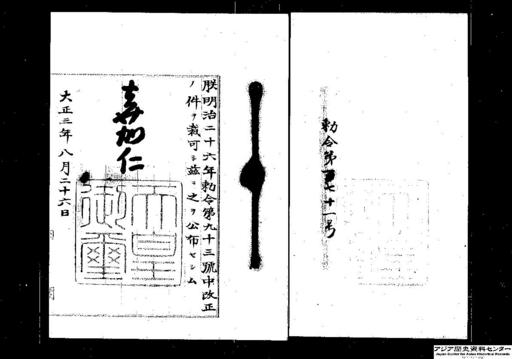 勅令第百七十一号
朕明治二十六年勅令第九十三號中改正
ノ件ヲ裁可シ茲ニ之ヲ公布セシム
嘉仁
天皇
御璽
大正三年八月二十六日
アジア歴史資料センター
Japan Center for Asian Historical Records